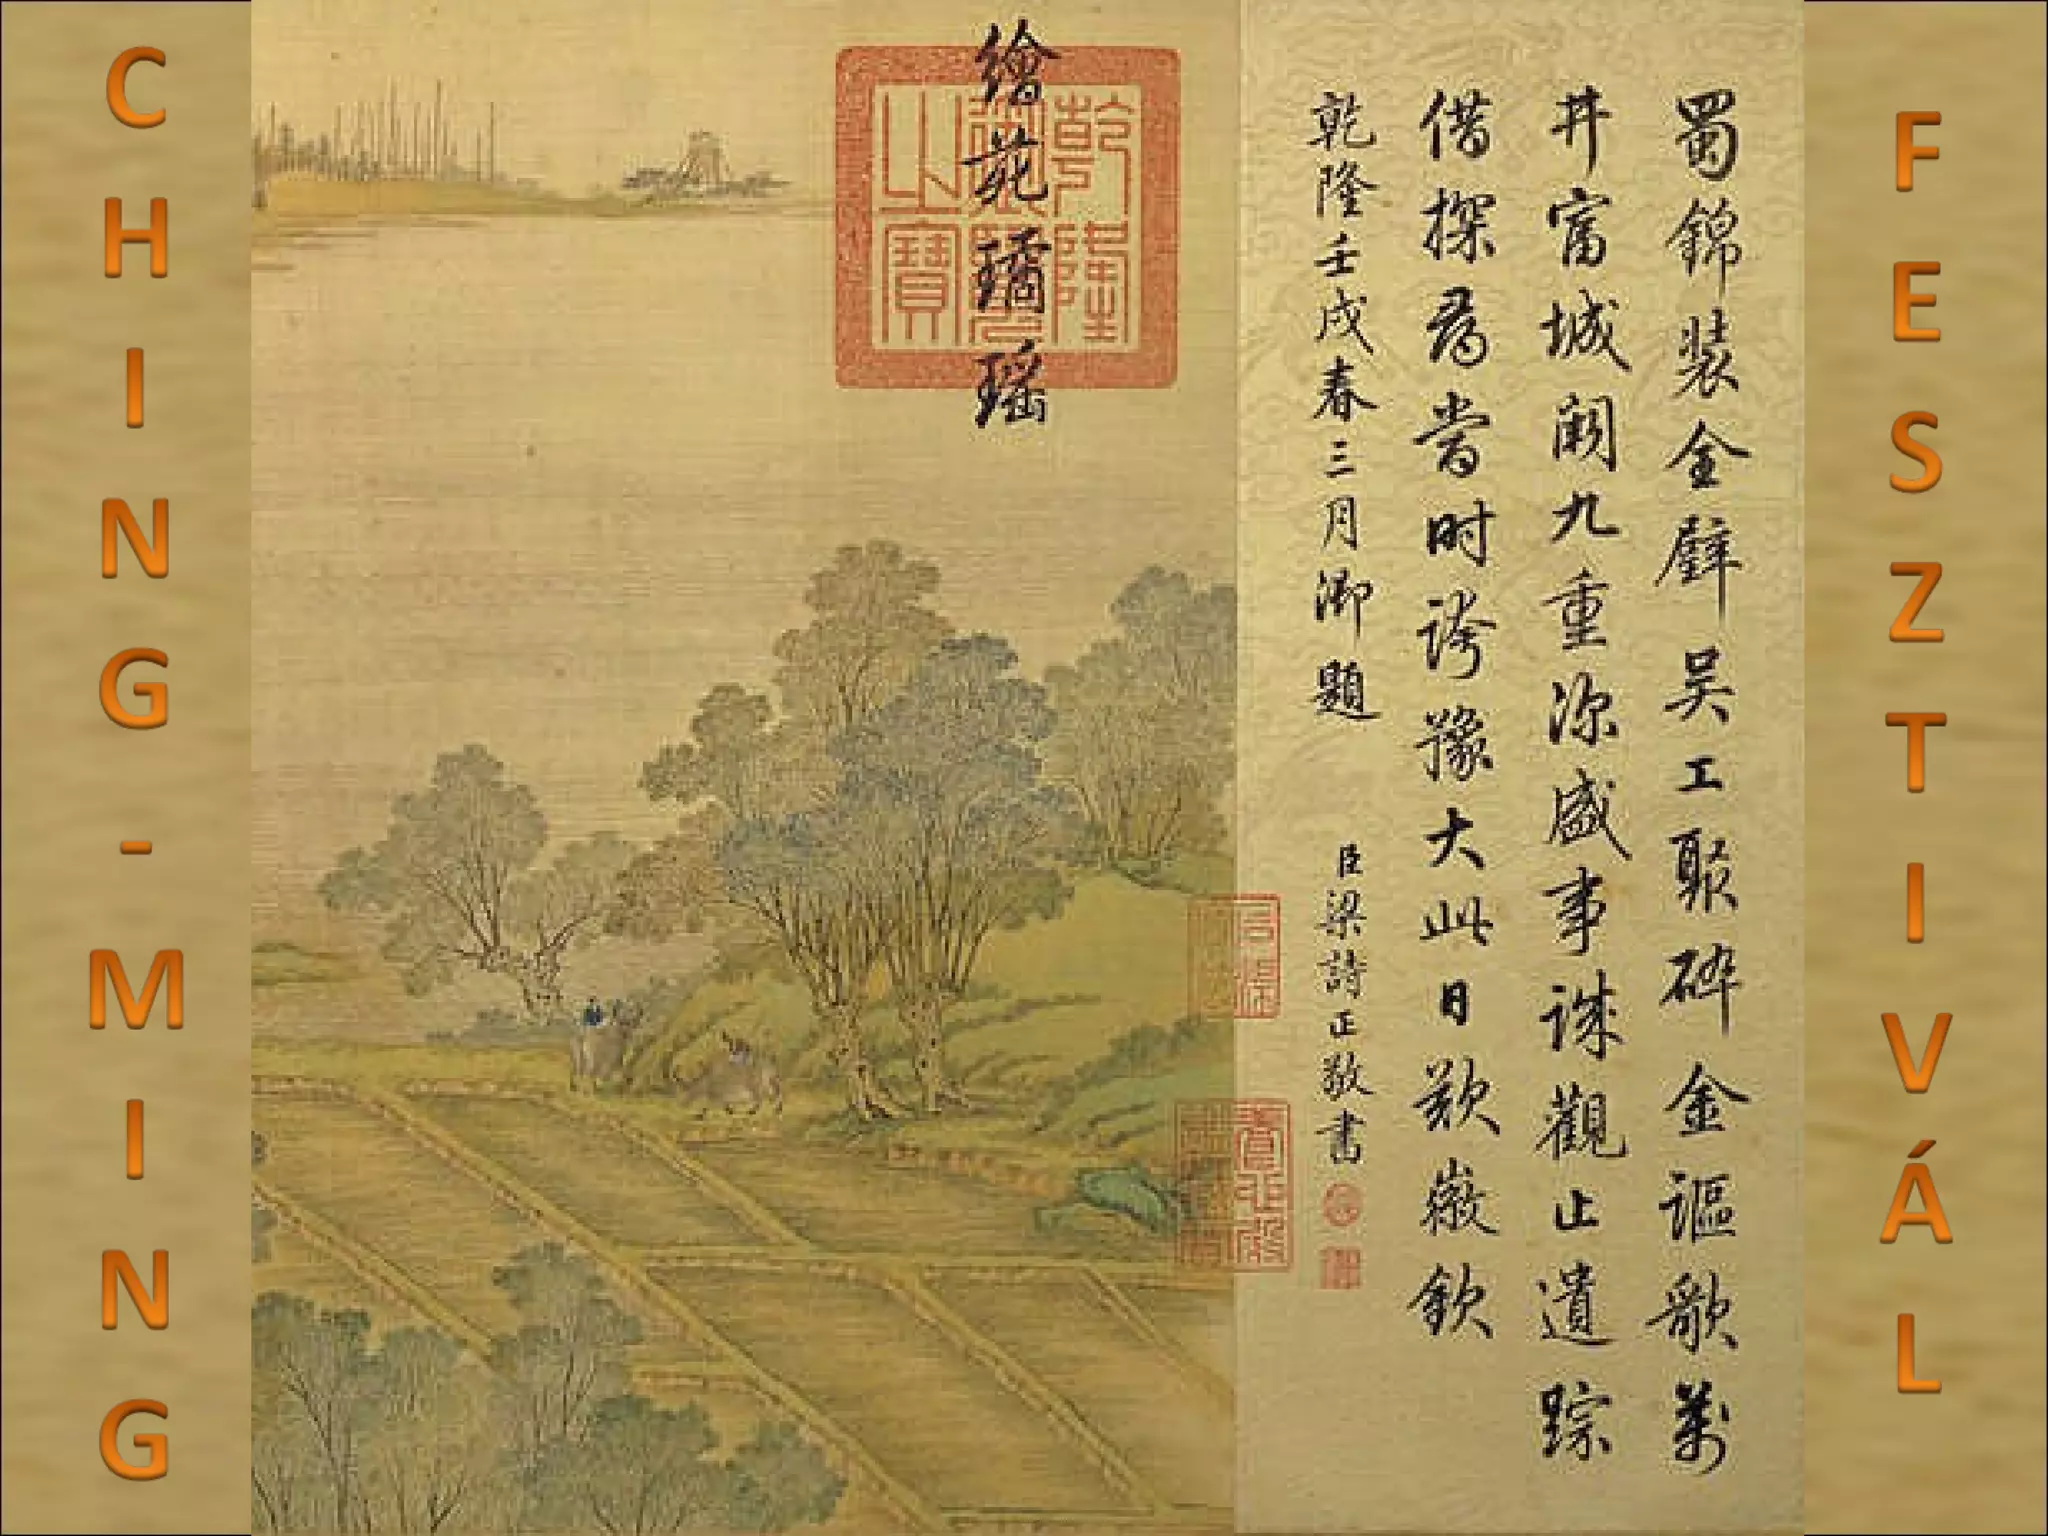 CHING-MING
繪苑璚瑤
乾隆
之寶
蜀錦裝金璧吳工聚碎金謳歌萬
井富城闕九重深盛事誠觀止遺踪
借探尋當時誇豫大此日歎徽欽
乾隆壬戌春三月御題
臣梁詩正敬書
FESZTIVÁL